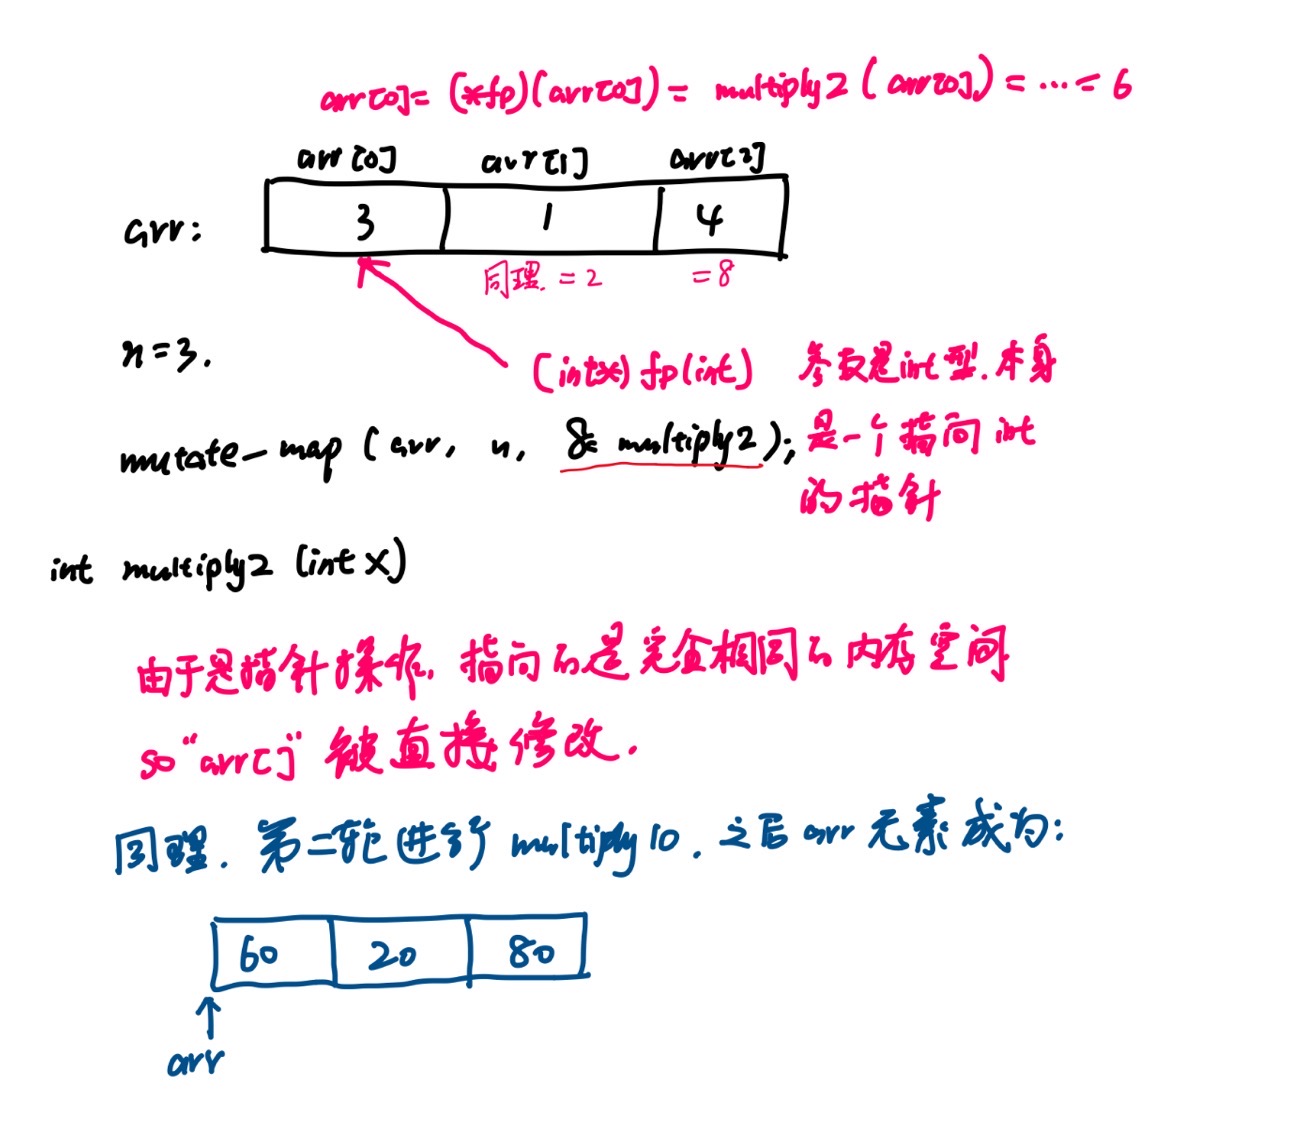 arr[0]= (*fp)(arr[0]) = multiply2 ( arr[0] ) = ... = 6
arr[0] arr[1] arr[2]
arr: 3 1 4
同理. = 2 = 8
n=3.
(int*) fp(int) 参数是int型.本身
mutate_map ( arr, n, & multiply2 ); 是一个指向 int
的指针
int multiply2 (int x)
由于是指针操作, 指向的是完全相同的内存空间
so "arr[]" 被直接修改.
同理. 第二轮进行 multiply10. 之后 arr 元素成为:
60 20 80
arr